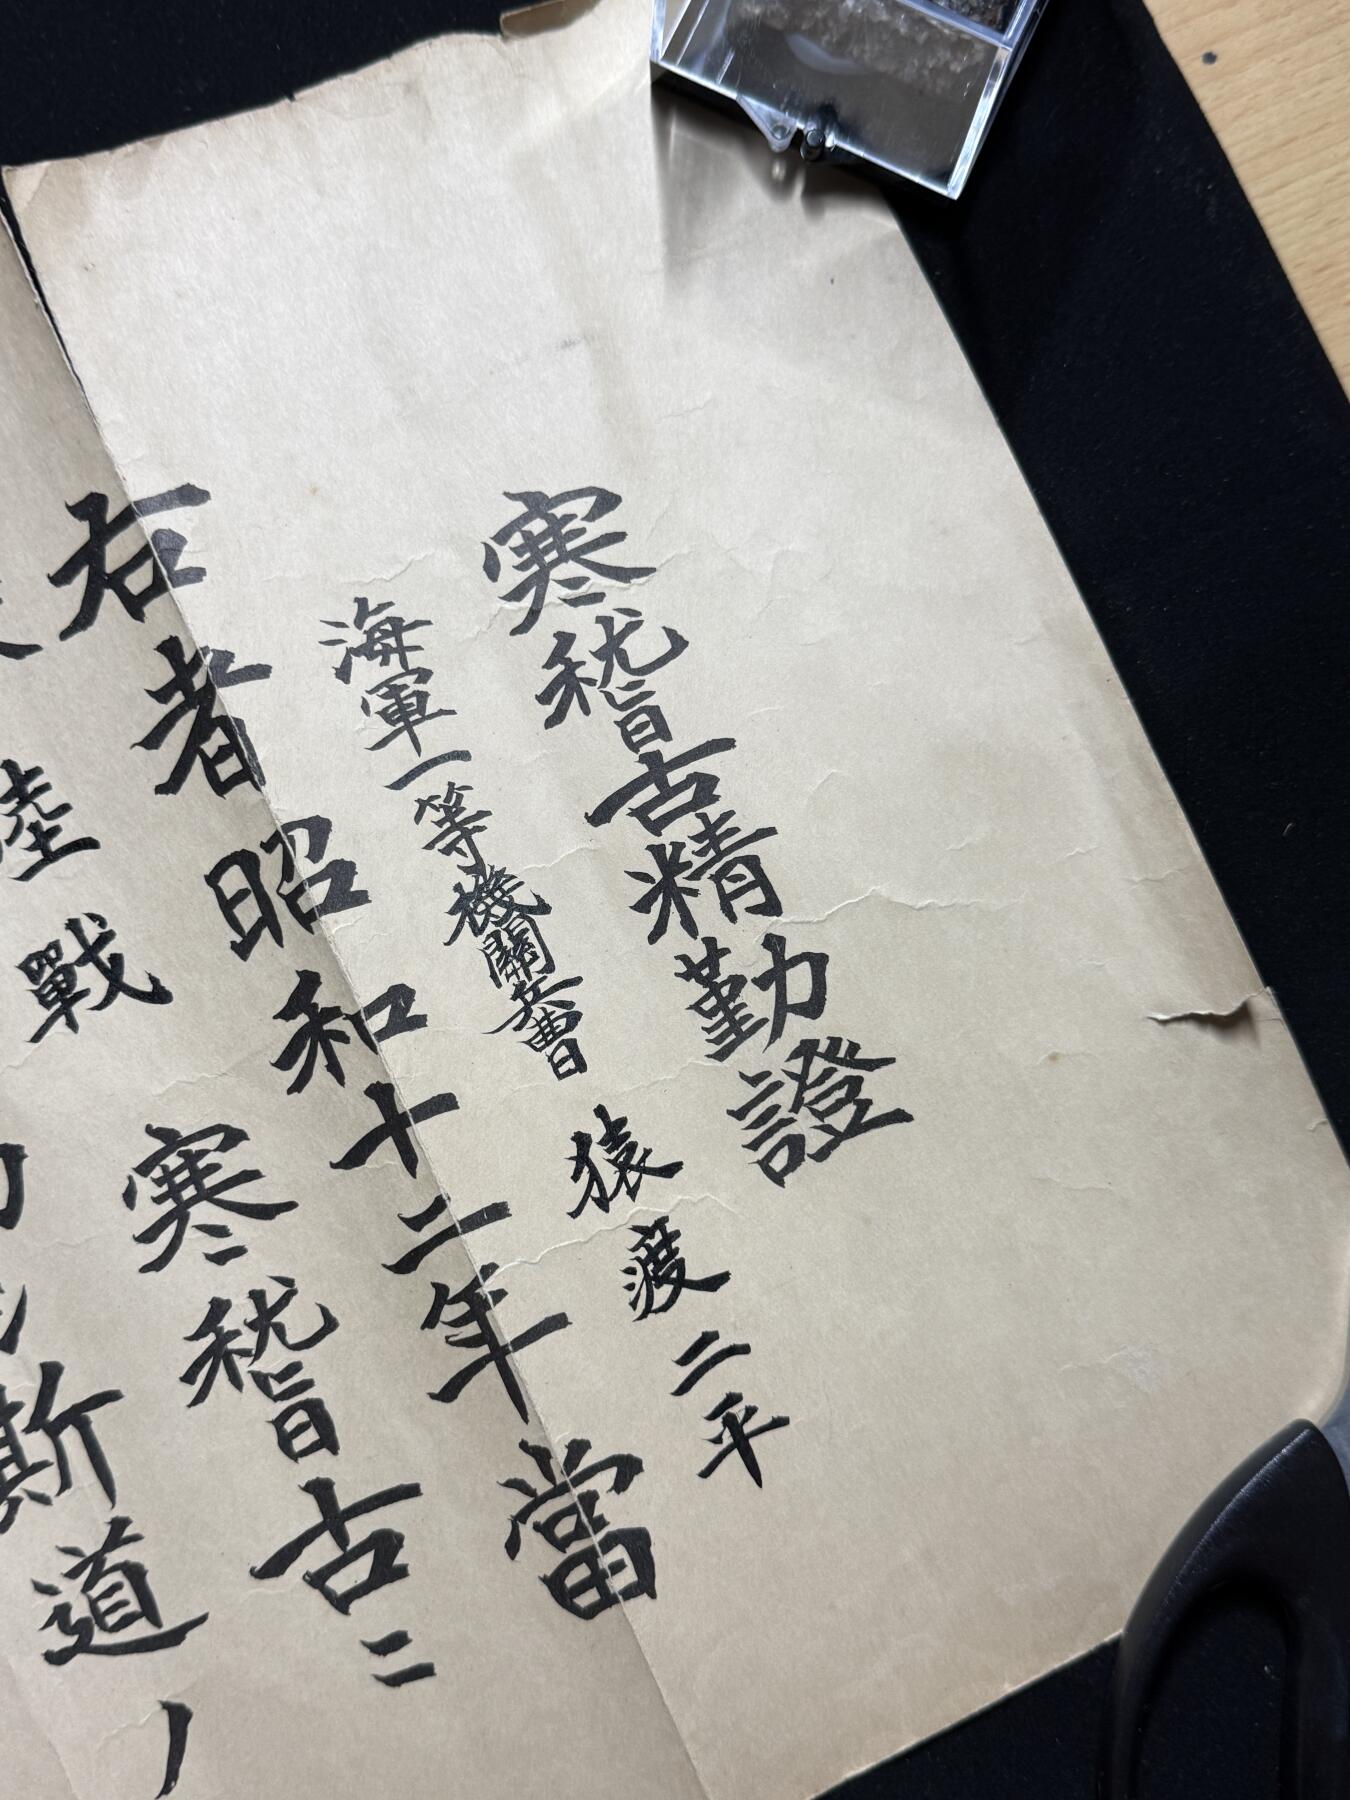 寒稽古精勤證
海軍一等機關兵曹 猿渡二平
右者昭和十二年當
陸戰
寒稽古ニ
斯道ノ